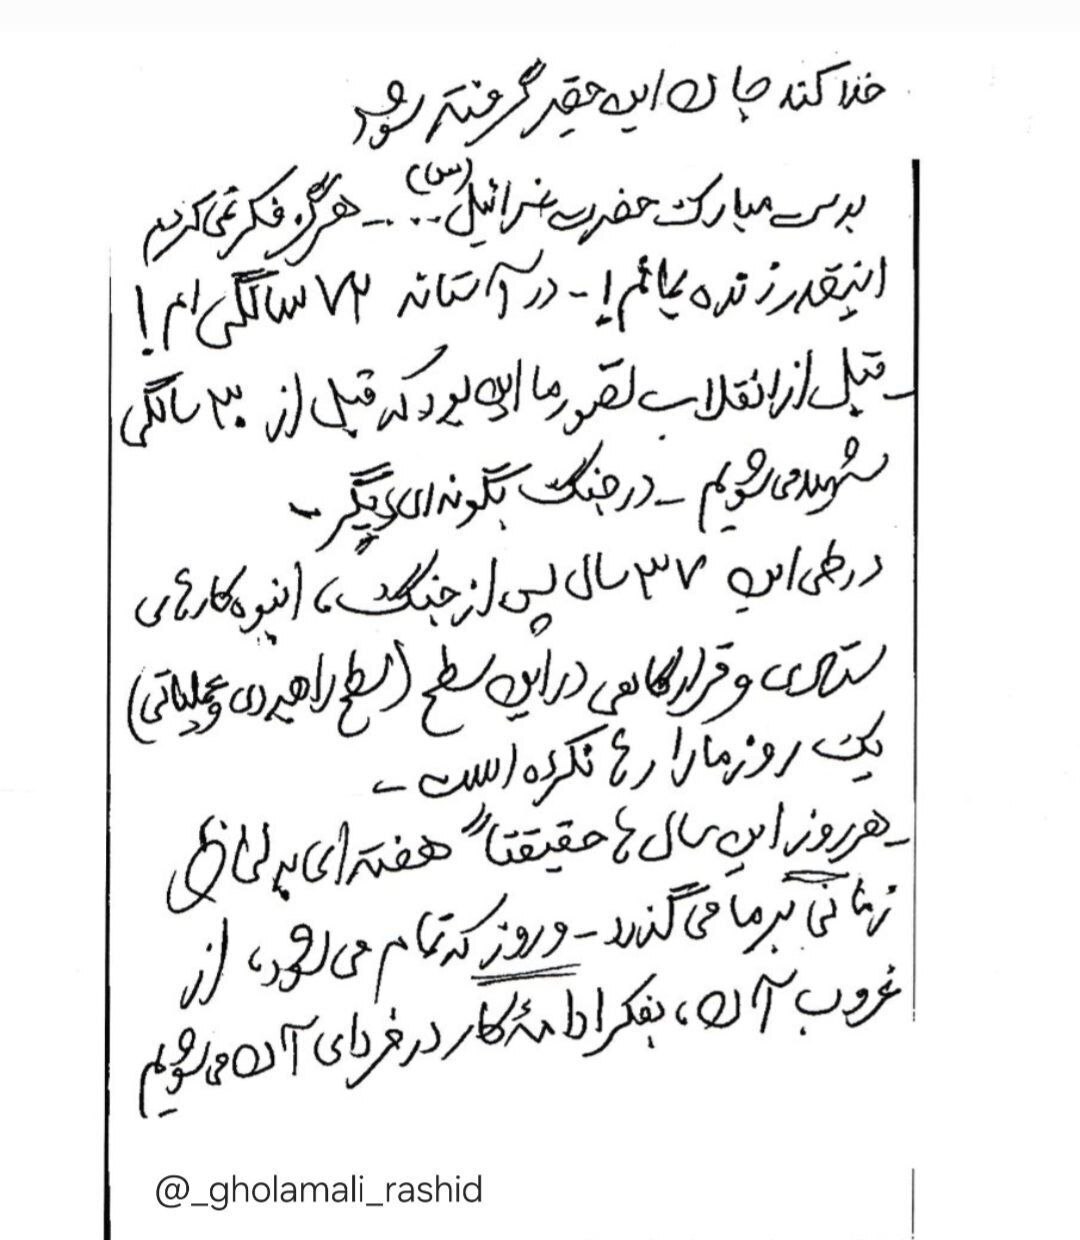 خدا کند جان این حقیر گرفته شود
بدست مبارک حضرت عزرائیل (س)... - هرگز فکر نمی‌کردیم
اینقدر زنده بمانم! - در آستانه ۷۲ سالگی‌ام!
- قبل از انقلاب تصور ما این بود که قبل از ۳۰ سالگی
شهید می‌شویم - در جنگ بگونه‌ای دیگر -
در طی این ۳۷ سال پس از جنگ، انبوه کارهای
ستادی و قرارگاهی در این سطح (سطح راهبردی و عملیاتی)
یک روز ما را رها نکرده است -
- هر روز این سال‌ها حقیقتاً هفته‌ای به لحاظ
زمانی بر ما می‌گذرد - و روز که تمام می‌شود، از
غروب آن، بفکر ادامهٔ کار در فردای آن می‌شویم
@_gholamali_rashid